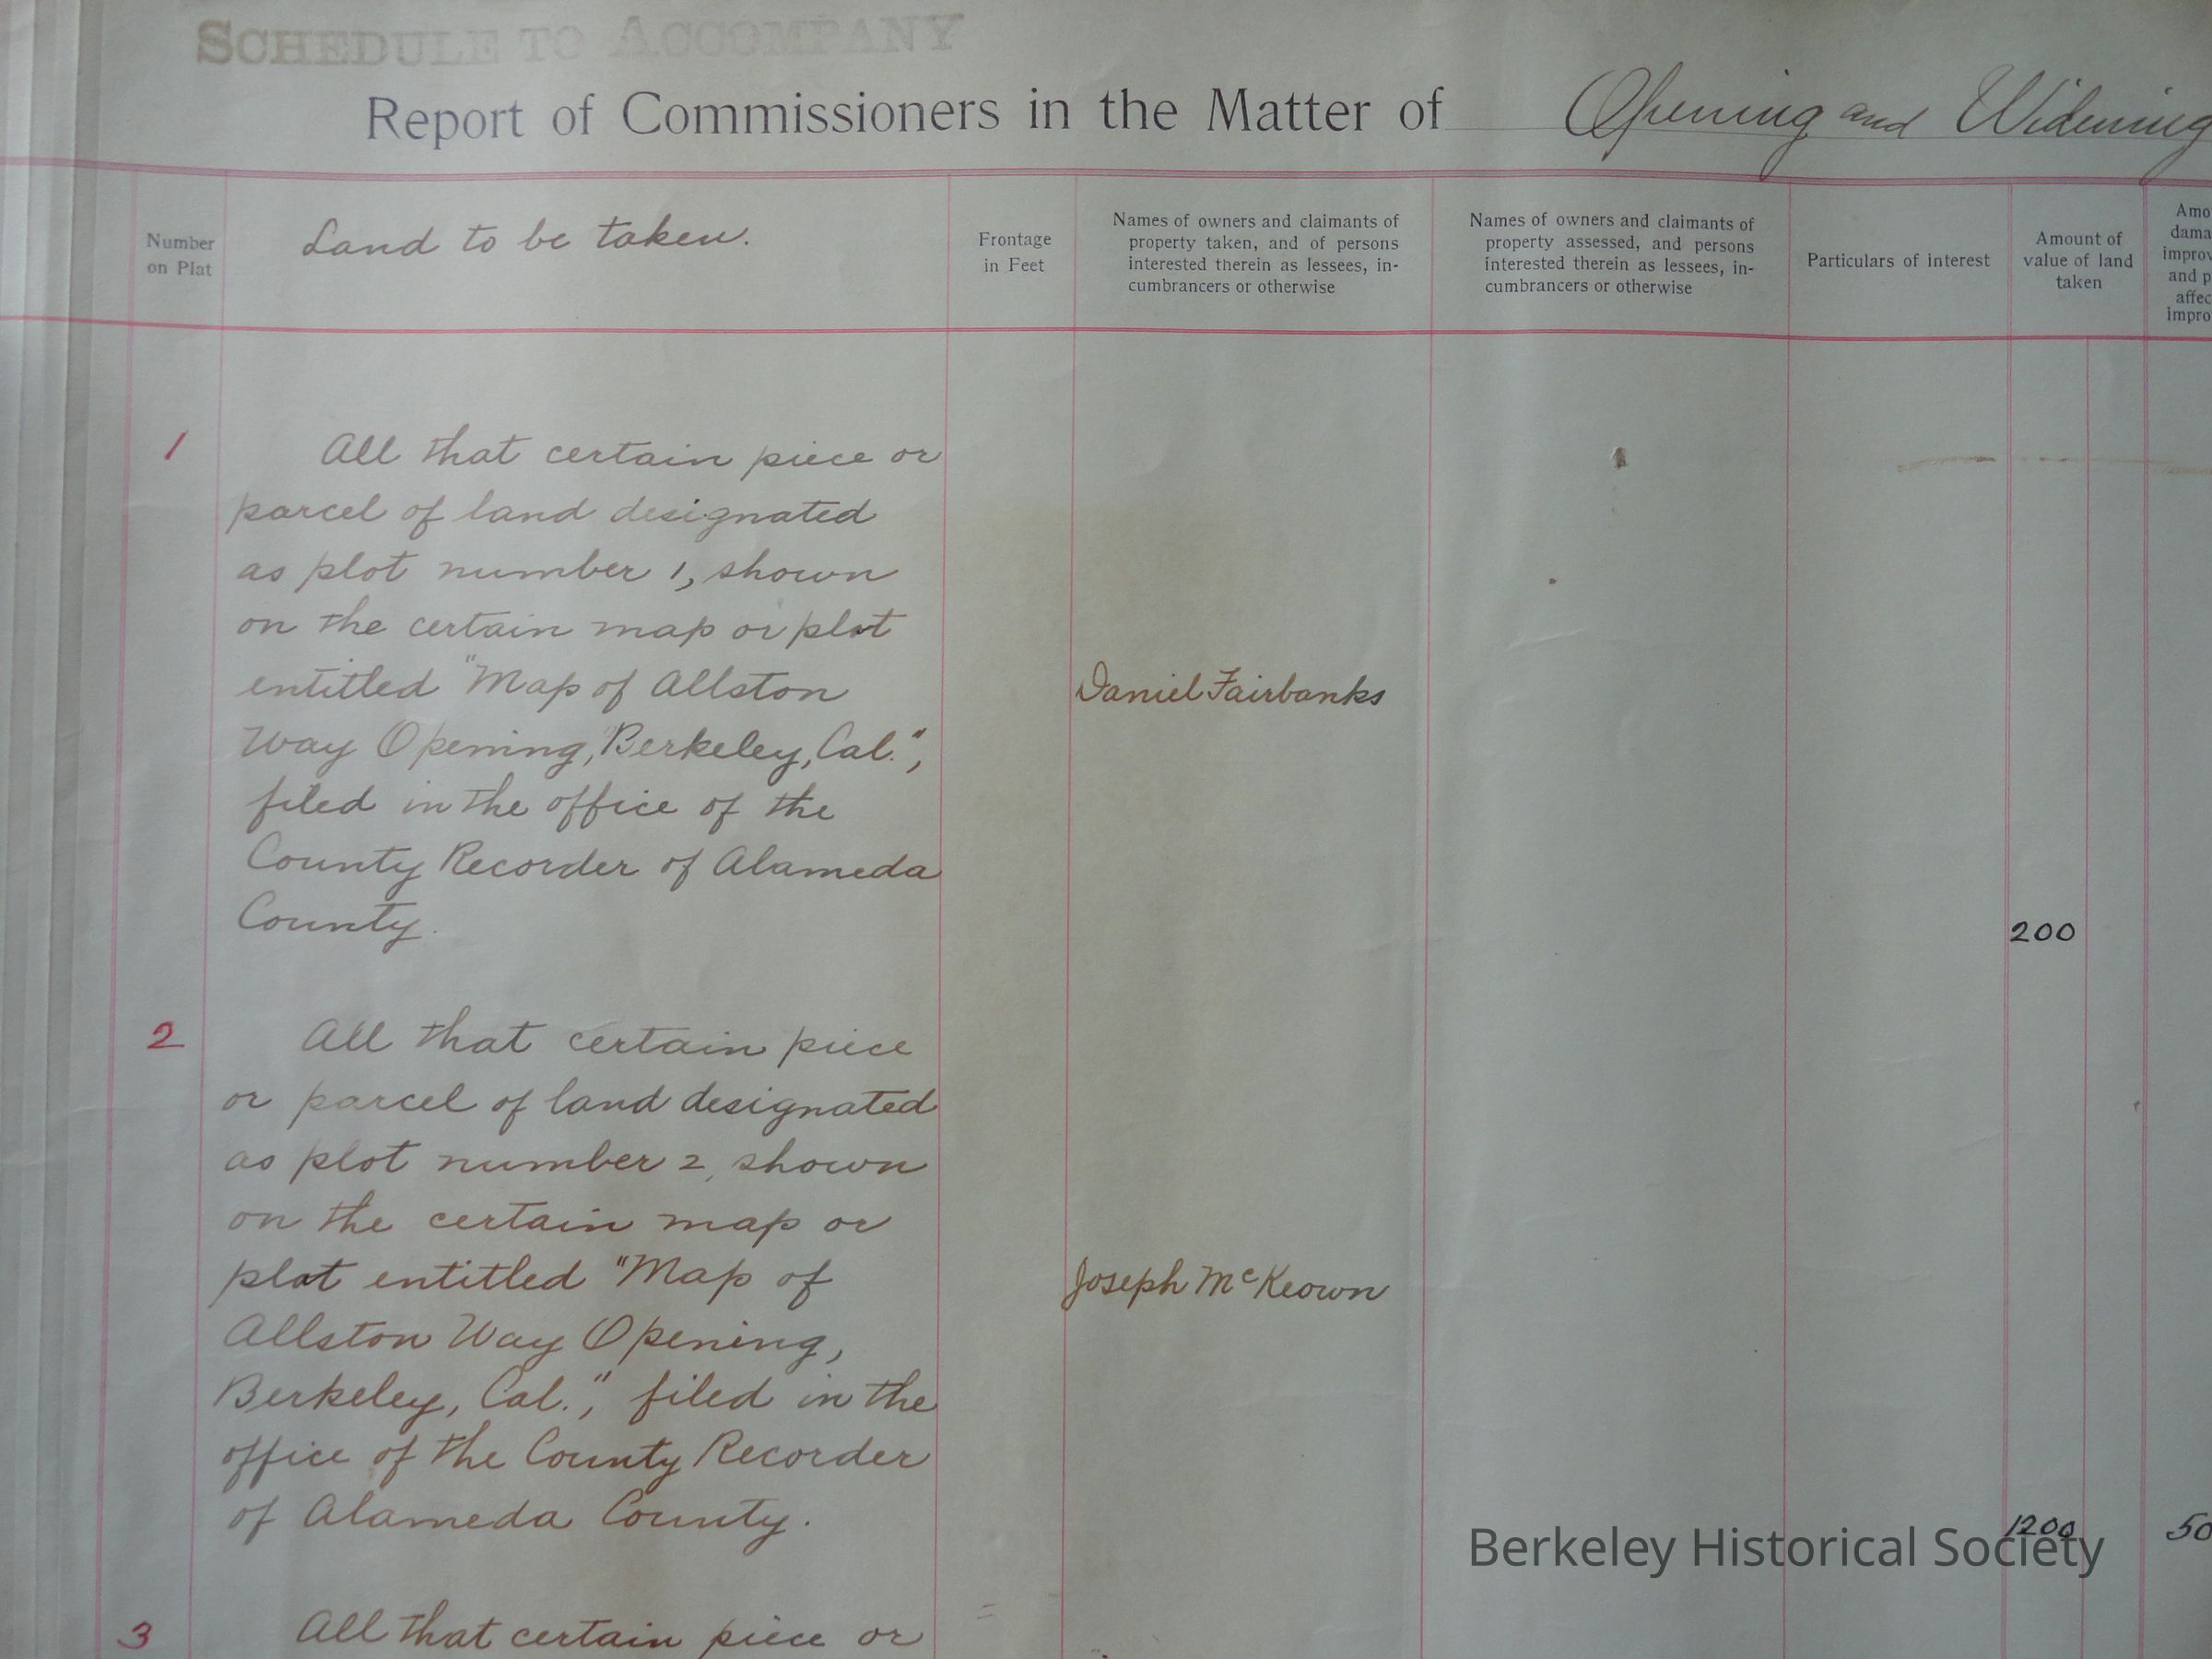 SCHEDULE TO ACCOMPANY
Report of Commissioners in the Matter of Opening and Widening
Number
on Plat
Land to be taken.
Frontage
in Feet
Names of owners and claimants of
property taken, and of persons
interested therein as lessees, in-
cumbrancers or otherwise
Names of owners and claimants of
property assessed, and persons
interested therein as lessees, in-
cumbrancers or otherwise
Particulars of interest
Amount of
value of land
taken
Amo
dama
improv
and p
affec
impro
1
All that certain piece or
parcel of land designated
as plot number 1, shown
on the certain map or plat
entitled "Map of Allston
Way Opening, Berkeley, Cal.",
filed in the office of the
County Recorder of Alameda
County.
Daniel Fairbanks
200
2
All that certain piece
or parcel of land designated
as plot number 2, shown
on the certain map or
plat entitled "Map of
Allston Way Opening,
Berkeley, Cal.", filed in the
office of the County Recorder
of Alameda County.
Joseph McKeown
1200
50
3
All that certain piece or
Berkeley Historical Society